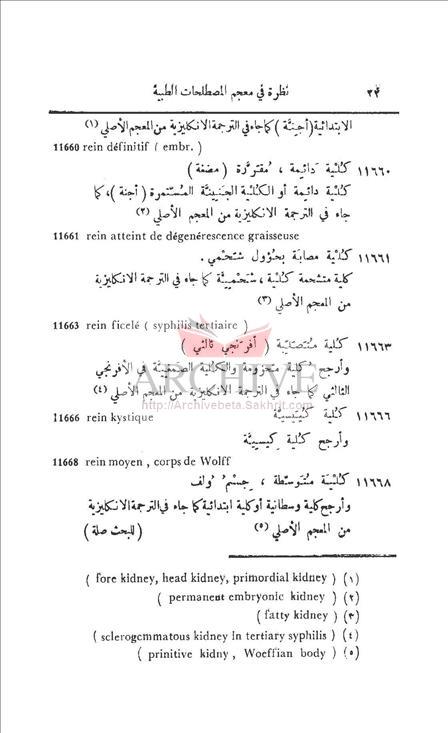 ٣٢ نظرة في معجم المصطلحات الطبية
الابتدائية (أجنة) كما جاء في الترجمة الانكليزية من المعجم الأصلي (١)
11660 rein définitif ( embr. )
١١٦٦٠ كُلْيَة دَائِمة ، مُقتورَّة ( مضغة )
كُلية دائمة أو الكُلية الجَنينيَّة المُسْتَمِرة ( أجنة )، كما
جاء في الترجمة الانكليزية من المعجم الأصلي (٢)
11661 rein atteint de dégenérescence graisseuse
١١٦٦١ كُلْيَة مصابة بحُؤول شَحْمي .
كلية متشحمة كُلية ، شَحْميَّة كما جاء في الترجمة الانكليزية
من المعجم الأصلي (٣)
11663 rein ficelé ( syphilis tertiaire )
١١٦٦٣ كُلية مُتَصلبة ( أفرَنجي ثالثي )
وأرجح كلية متحزومة والكلية الصمغية في الأفرنجي
الثالثي كما جاء في الترجمة الانكليزية من المعجم الأصلي (٤)
ARCHIVE
http://Archivebeta.Sakhrit.com
11666 rein kystique
١١٦٦٦ كُلية كُيَيْسيَّة
وأرجح كُلية كيسيَّة
11668 rein moyen , corps de Wolff
١١٦٦٨ كُلْيَة مُتَوسطة ، جِسْمُ وُلف
وأرجح كلية وسطانية أو كلية ابتدائية كما جاء في الترجمة الانكليزية
من المعجم الأصلي (٥) ( للبحث صلة )
( fore kidney, head kidney, primordial kidney ) (١)
( permanent embryonic kidney ) (٢)
( fatty kidney ) (٣)
( sclerogemmatous kidney in tertiary syphilis ) (٤)
( prinitive kidny , Woeffian body ) (٥)